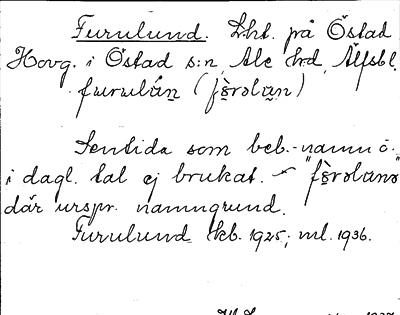 Furulund. Lht. på Östad
Hovg. i Östad s:n, Ale hd, Älfsbl.
furulån (fòrolan)
Sentida som beb.-namn o.
i dagl. tal ej brukat. "fòrolans
där urspr. namngrund.
Furulund kb. 1925; ml. 1936.